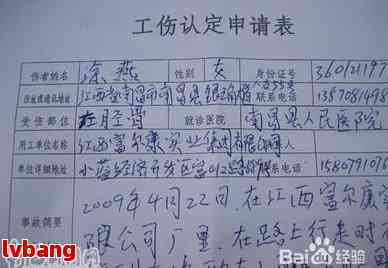 工伤认定申请表
伤者姓名 涂燕 性别 女 身份证号 360121197
住址或通讯地址 江西省南昌市南昌县 联系电话 1357081498
受伤部位 左胫骨 就诊医院 南昌县人民医院
用工单位名称 江西富尔康实业集团有限公司
单位详细地址 小蓝经济开发区富山 联系电话 1580791016
2009年4月22日,在江西富尔康实
事故简要 限公司厂里,在路上行走时
lvbang
Bai 经验